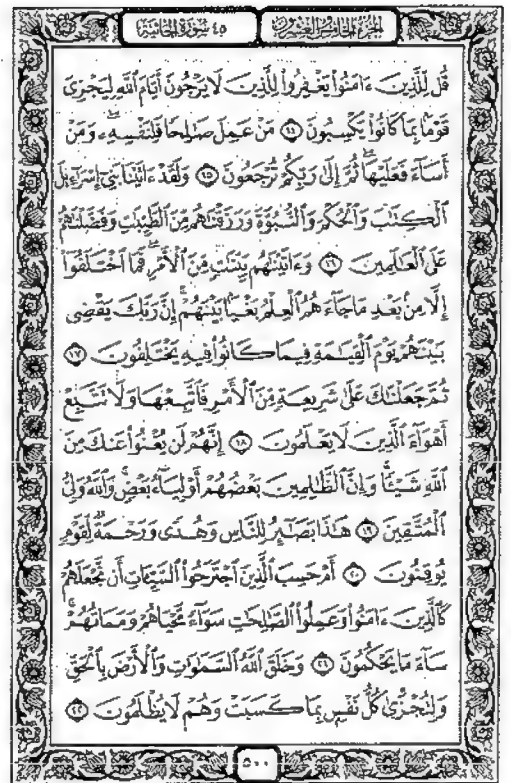 الجزء الخامس والعشرون ٤٥ سورة الجاثية
قُل لِّلَّذِينَ ءَامَنُوا۟ يَغْفِرُوا۟ لِلَّذِينَ لَا يَرْجُونَ أَيَّامَ ٱللَّهِ لِيَجْزِىَ
قَوْمًۢا بِمَا كَانُوا۟ يَكْسِبُونَ ١٤ مَنْ عَمِلَ صَـٰلِحًا فَلِنَفْسِهِۦ وَمَنْ
أَسَآءَ فَعَلَيْهَا ۖ ثُمَّ إِلَىٰ رَبِّكُمْ تُرْجَعُونَ ١٥ وَلَقَدْ ءَاتَيْنَا بَنِىٓ إِسْرَٰٓءِيلَ
ٱلْكِتَـٰبَ وَٱلْحُكْمَ وَٱلنُّبُوَّةَ وَرَزَقْنَـٰهُم مِّنَ ٱلطَّيِّبَـٰتِ وَفَضَّلْنَـٰهُمْ
عَلَى ٱلْعَـٰلَمِينَ ١٦ وَءَاتَيْنَـٰهُم بَيِّنَـٰتٍ مِّنَ ٱلْأَمْرِ ۖ فَمَا ٱخْتَلَفُوٓا۟
إِلَّا مِنۢ بَعْدِ مَا جَآءَهُمُ ٱلْعِلْمُ بَغْيًۢا بَيْنَهُمْ ۚ إِنَّ رَبَّكَ يَقْضِى
بَيْنَهُمْ يَوْمَ ٱلْقِيَـٰمَةِ فِيمَا كَانُوا۟ فِيهِ يَخْتَلِفُونَ ١٧
ثُمَّ جَعَلْنَـٰكَ عَلَىٰ شَرِيعَةٍ مِّنَ ٱلْأَمْرِ فَٱتَّبِعْهَا وَلَا تَتَّبِعْ
أَهْوَآءَ ٱلَّذِينَ لَا يَعْلَمُونَ ١٨ إِنَّهُمْ لَن يُغْنُوا۟ عَنكَ مِنَ
ٱللَّهِ شَيْـًٔا ۚ وَإِنَّ ٱلظَّـٰلِمِينَ بَعْضُهُمْ أَوْلِيَآءُ بَعْضٍ ۖ وَٱللَّهُ وَلِىُّ
ٱلْمُتَّقِينَ ١٩ هَـٰذَا بَصَـٰٓئِرُ لِلنَّاسِ وَهُدًى وَرَحْمَةٌ لِّقَوْمٍ
يُوقِنُونَ ٢٠ أَمْ حَسِبَ ٱلَّذِينَ ٱجْتَرَحُوا۟ ٱلسَّيِّـَٔاتِ أَن نَّجْعَلَهُمْ
كَٱلَّذِينَ ءَامَنُوا۟ وَعَمِلُوا۟ ٱلصَّـٰلِحَـٰتِ سَوَآءً مَّحْيَاهُمْ وَمَمَاتُهُمْ ۚ
سَآءَ مَا يَحْكُمُونَ ٢١ وَخَلَقَ ٱللَّهُ ٱلسَّمَـٰوَٰتِ وَٱلْأَرْضَ بِٱلْحَقِّ
وَلِتُجْزَىٰ كُلُّ نَفْسٍۭ بِمَا كَسَبَتْ وَهُمْ لَا يُظْلَمُونَ ٢٢
٥٠٠